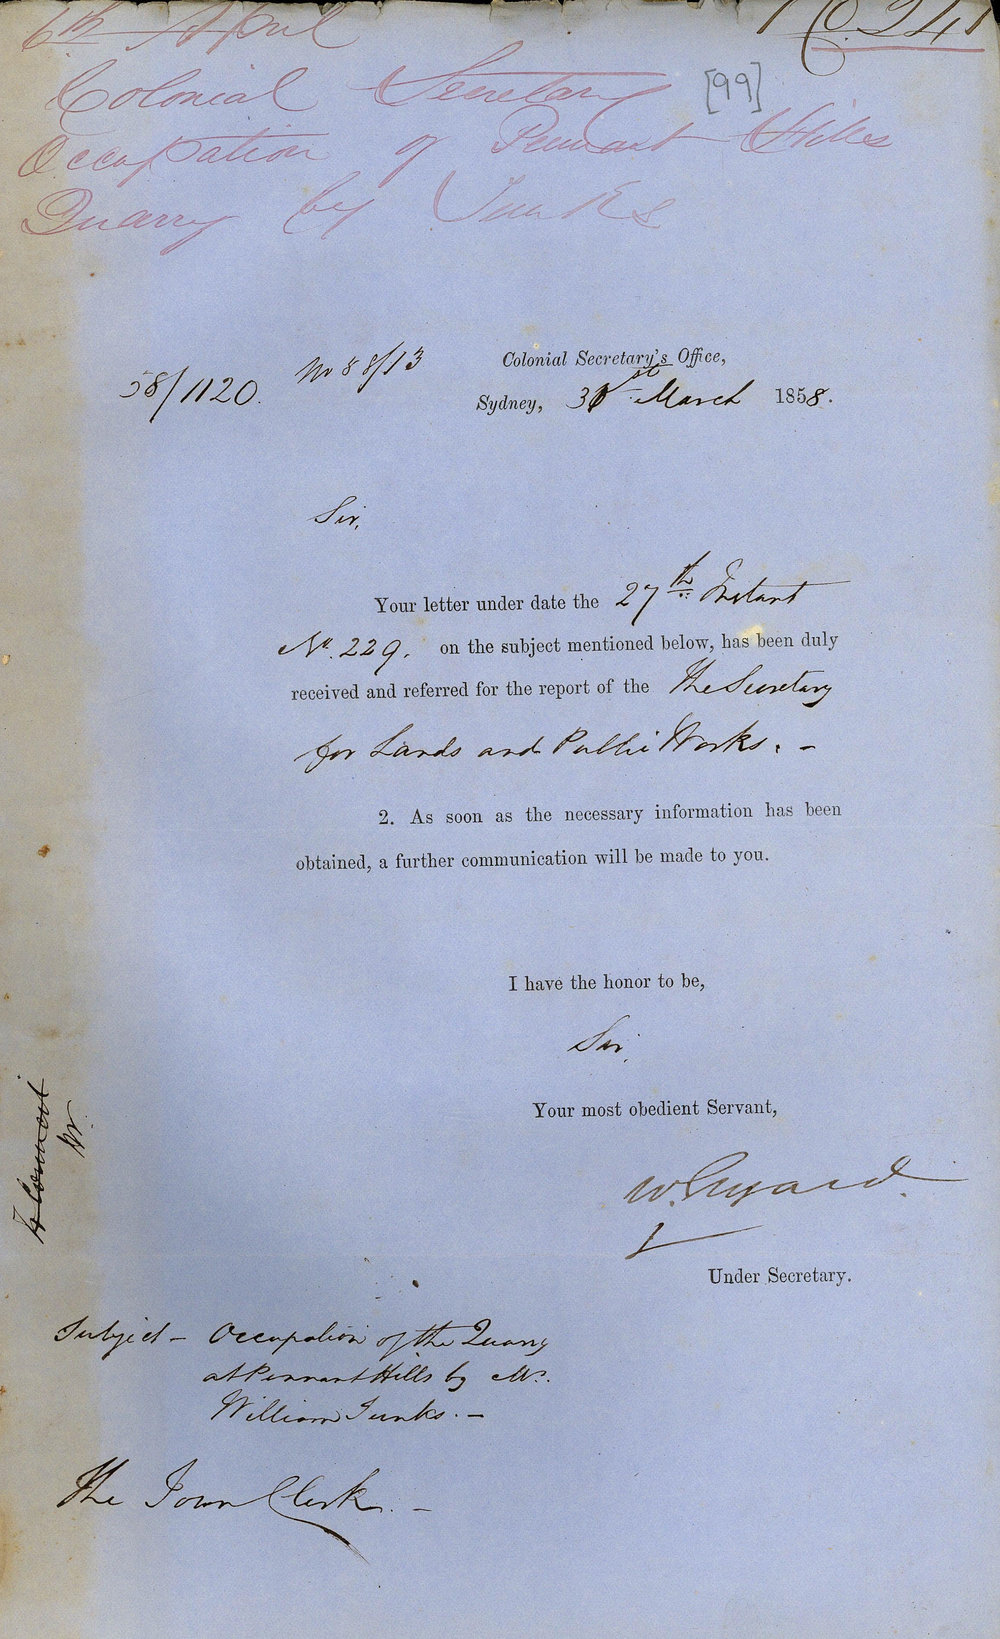 6th April
No. 241
Colonial Secretary
[99]
Occupation of Pennant Hills
Quarry by Junks
58/1120.
No 88/13
Colonial Secretary's Office,
Sydney, 31st March 1858.
Sir,
Your letter under date the 27th Instant
No. 229. on the subject mentioned below, has been duly
received and referred for the report of the The Secretary
for Lands and Public Works. -
2. As soon as the necessary information has been
obtained, a further communication will be made to you.
I have the honor to be,
Sir,
Your most obedient Servant,
W. Elyard
Under Secretary.
Subject - Occupation of the Quarry
at Pennant Hills by Mr.
William Junks. -
The Town Clerk. -